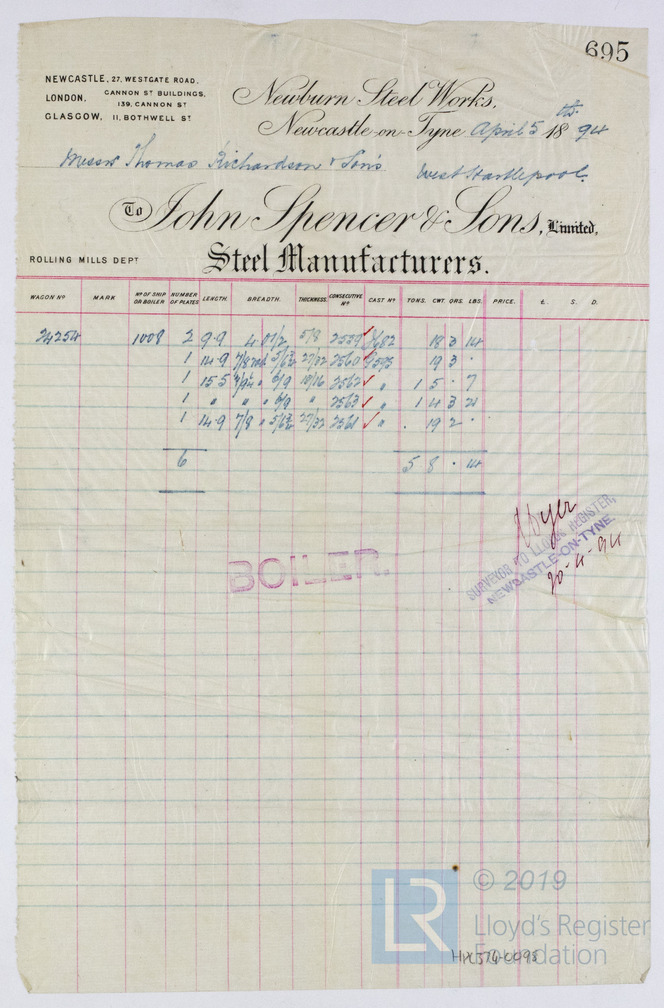 695
NEWCASTLE, 27, WESTGATE ROAD.
LONDON, CANNON ST BUILDINGS, 139, CANNON ST
GLASGOW, 11, BOTHWELL ST
Newburn Steel Works,
Newcastle-on-Tyne April 5th 1894
Messrs Thomas Richardson & Sons West Hartlepool.
To John Spencer & Sons, Limited,
ROLLING MILLS DEPT Steel Manufacturers.
WAGON No MARK No OF SHIP OR BOILER NUMBER OF PLATES LENGTH. BREADTH. THICKNESS. CONSECUTIVE No CAST No TONS. CWT. QRS. LBS. PRICE. £. S. D.
24254 1008 2 9-9 4 0 1/2 5/8 2559 ✓ 18 3 14
1 14-9 7/8 27/32 2560 ✓ 19 3 .
1 15 5 " 6/9 13/16 2562 ✓ " 1 5 . 7
1 " " " 6/9 " 2563 ✓ " 1 4 3 21
1 14 9 7/8 " 27/32 2561 ✓ " . 19 2 .
6 5 8 . 14
BOILER.
SURVEYOR TO LLOYDS REGISTER,
NEWCASTLE-ON-TYNE
20-4-94
© 2019
LR Lloyd's Register
Foundation